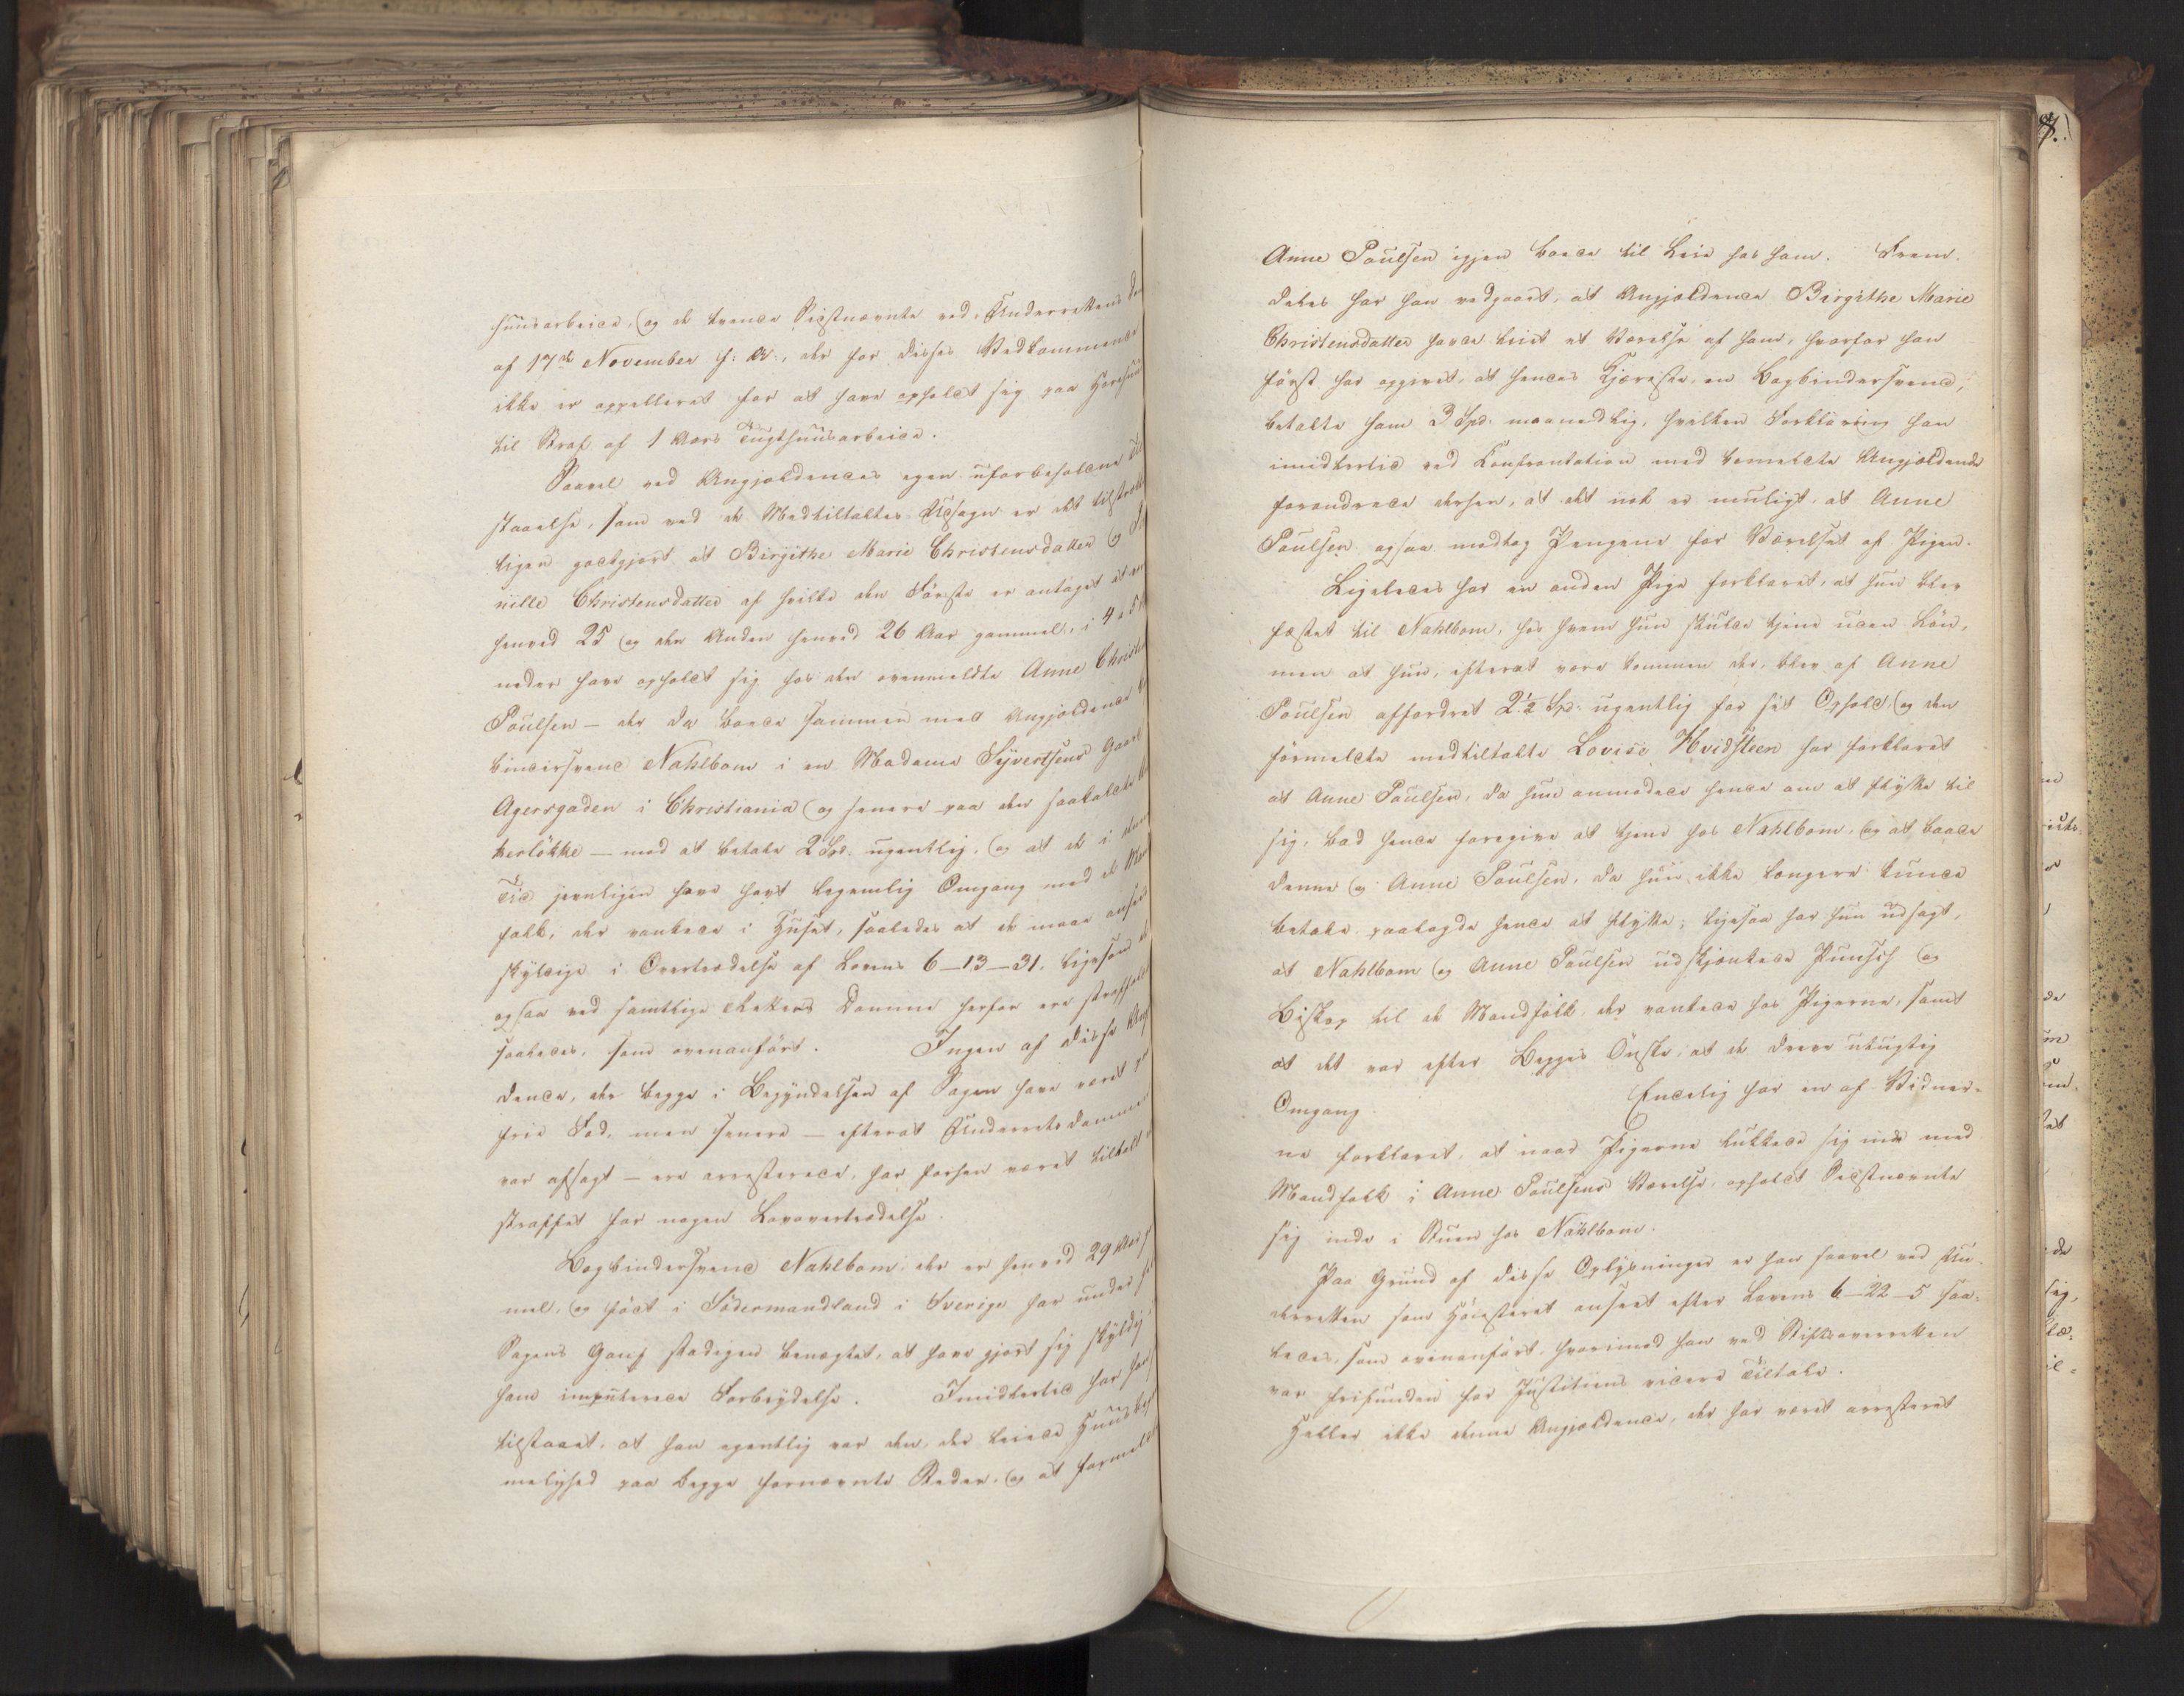 huusarbeide, og de tvende Sidstnævnte ved Underrettens Dom
af 17de November f: A:, der for disses Vedkommende
ikke er appelleret for at have opholdt sig paa Horehuus
til Straf af 1 Aars Tugthuusarbeide.
Saavel ved Angjældendes egen uforbeholdne Til
staaelse, som ved de Medtiltaltes Udsagn er det tilstræk
ligen godtgjort at Birgithe Marie Christensdatter og
nille Christensdatter af hvilke den Første er antaget at
henved 25 og den Anden henved 26 Aar gammel, i 4 a 5
neder have opholdt sig hos den ovenmeldte Anne
Poulsen – der da boede sammen med Angjældende
bindersvend Nahlbom i en Madame Syvertsens Gaard
Agersgaden i Christiania og senere paa den saakaldte
kerløkke – mod at betale 2 Spd. ugentlig, og at de i denne
Tid jevnligen have havt legemlig Omgang med de Mand
folk, der vankede i Huset, saaledes at de maae ansees
skyldige i Overtrædelse af Lovens 6–13–31, ligesom de
ogsaa ved samtlige Retters Domme herfor ere straffældte
saaledes, som ovenanført. Ingen af disse Angjæl
dende, der begge i Begyndelsen af Sagen have været paa
frie Fod, men senere – efterat Underretsdommen
var afsagt – ere arresterede, har forhen været tiltalt
straffet for nogen Lovovertrædelse.
Bogbindersvend Nahlbom, der er henved 29 Aar
mel, og født i Södermandland i Sverige har under
Sagens Gang stadigen benægtet, at have gjort sig skyldig
ham imputerede Forbrydelse. Imidlertid har han
tilstaaet, at han egentlig var den, der leiede Huus
melighed paa begge fornævnte Steder, og at formeldte
Anne Poulsen igjen boede til Leie hos ham. Frem-
deles har han vedgaaet, at Angjældende Birgithe Marie
Christensdatter havde leiet et Værelse af ham, hvorfor han
først har opgivet, at hendes Kjæreste, en Bogbindersvend,
betalte ham 3 Spd. maanedlig, hvilken Forklaring han
imidlertid ved Confrontation med bemeldte Angjældende
forandrede derhen, at det nok er muligt, at Anne
Poulsen ogsaa modtog Pengene for Værelset af Pigen.
Ligeledes har en anden Pige forklaret, at hun blev
fæstet til Nahlbom, hos hvem hun skulde tjene uden Løn,
men at hun, efterat være kommen der, blev af Anne
Poulsen affordret 2½ Spd. ugentlig for sit Ophold, og den
førmeldte medtiltalte Lovise Hvidsteen har forklaret
at Anne Poulsen, da hun anmodede hende om at flytte til
sig, bad hende foregive at tjene hos Nahlbom, og at baade
denne og Anne Poulsen, da hun ikke længere kunde
betale paalagde hende at flytte; ligesaa har hun udsagt,
at Nahlbom og Anne Poulsen udskjænkede Punsch og
Biskop til de Mandfolk, der vankede hos Pigerne, samt
at det var efter Begges Ønske, at de dreve utugtig
Omgang. Endelig har en af Vidner-
ne forklaret, at naar Pigerne lukkede sig inde med
Mandfolk i Anne Poulsens Værelse, opholdt Sidstnævnte
sig inde i Stuen hos Nahlbom.
Paa Grund af disse Oplysninger er han saavel ved Un-
derretten som Høiesteret anseet efter Lovens 6–22–5 saa-
ledes, som ovenanført, hvorimod han ved Stiftsoverretten
var frifunden for Justitiens videre Tiltale.
Heller ikke denne Angjældende, der har været arresteret